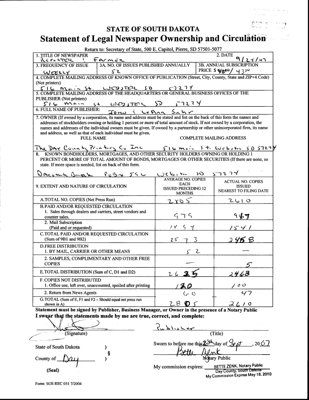 STATE OF SOUTH DAKOTA
Statement of Legal Newspaper Ownership and Circulation
Return to: Secretary of State, 500 E. Capitol, Pierre, SD 57501-5077
1. TITLE OF NEWSPAPER
2. DATE
Reporter & Farmer
3. FREQUENCY OF ISSUE
3A. NO. OF ISSUES PUBLISHED ANNUALLY
3B. ANNUAL SUBSCRIPTION
WEEKLY
52
PRICE
4. COMPLETE MAILING ADDRESS OF KNOWN OFFICE OF PUBLICATION (Street, City, County, State and ZIP+4 Code) (Not printers)
516 Main St WEBSTER SD 57274
5. COMPLETE MAILING ADDRESS OF THE HEADQUARTERS OR GENERAL BUSINESS OFFICES OF THE PUBLISHER (Not printers)
516 Main St WEBSTER SD 57274
6. FULL NAME OF PUBLISHER:
7. OWNER (If owned by a corporation, its name and address must be stated and list on the back of this form the names and addresses of stockholders owning or holding 1 percent or more of total amount of stock. If not owned by a corporation, the names and addresses of the individual owners must be given. If owned by a partnership or other unincorporated firm, its name and address, as well as that of each individual must be given.
FULL NAME
COMPLETE MAILING ADDRESS
The Day County Printing Co Inc 516 Main St Webster SD 57274
8. KNOWN BONDHOLDERS, MORTGAGES, AND OTHER SECURITY HOLDERS OWNING OR HOLDING 1 PERCENT OR MORE OF TOTAL AMOUNT OF BONDS, MORTGAGES OR OTHER SECURITIES (If there are none, so state. If more space is needed, list on back of this form.
Dacotah Bank Webster SD 57274
9. EXTENT AND NATURE OF CIRCULATION
AVERAGE NO. COPIES EACH ISSUED PRECEDING 12 MONTHS
ACTUAL NO. COPIES ISSUED NEAREST TO FILING DATE
A. TOTAL NO. COPIES (Net Press Run)
2805
2610
B. PAID AND/OR REQUESTED CIRCULATION
1. Sales through dealers and carriers, street vendors and counter sales.
2. Mail Subscription (Paid and or requested)
1541
C. TOTAL PAID AND/OR REQUESTED CIRCULATION (Sum of 9B1 and 9B2)
2573
2458
D. FREE DISTRIBUTION
1. BY MAIL, CARRIER OR OTHER MEANS
52
2. SAMPLES, COMPLIMENTARY AND OTHER FREE COPIES
5
E. TOTAL DISTRIBUTION (Sum of C, D1 and D2)
2625
2463
F. COPIES NOT DISTRIBUTED
1. Office use, left over, unaccounted, spoiled after printing
120
100
2. Return from News Agents
60
47
G. TOTAL (Sum of E, F1 and F2 – Should equal net press run shown in A)
2805
2610
Statement must be signed by Publisher, Business Manager, or Owner in the presence of a Notary Public
I swear that the statements made by me are true, correct, and complete:
Publisher
(Signature)
(Title)
State of South Dakota )
§
County of Day )
Sworn to before me this day of Sep, 2007
Betti Zenk
Notary Public
(Seal)
My commission expires:
BETTI ZENK, Notary Public
Day County, South Dakota
My Commission Expires May 18, 2010
Form: SOS REC 051 7/2004